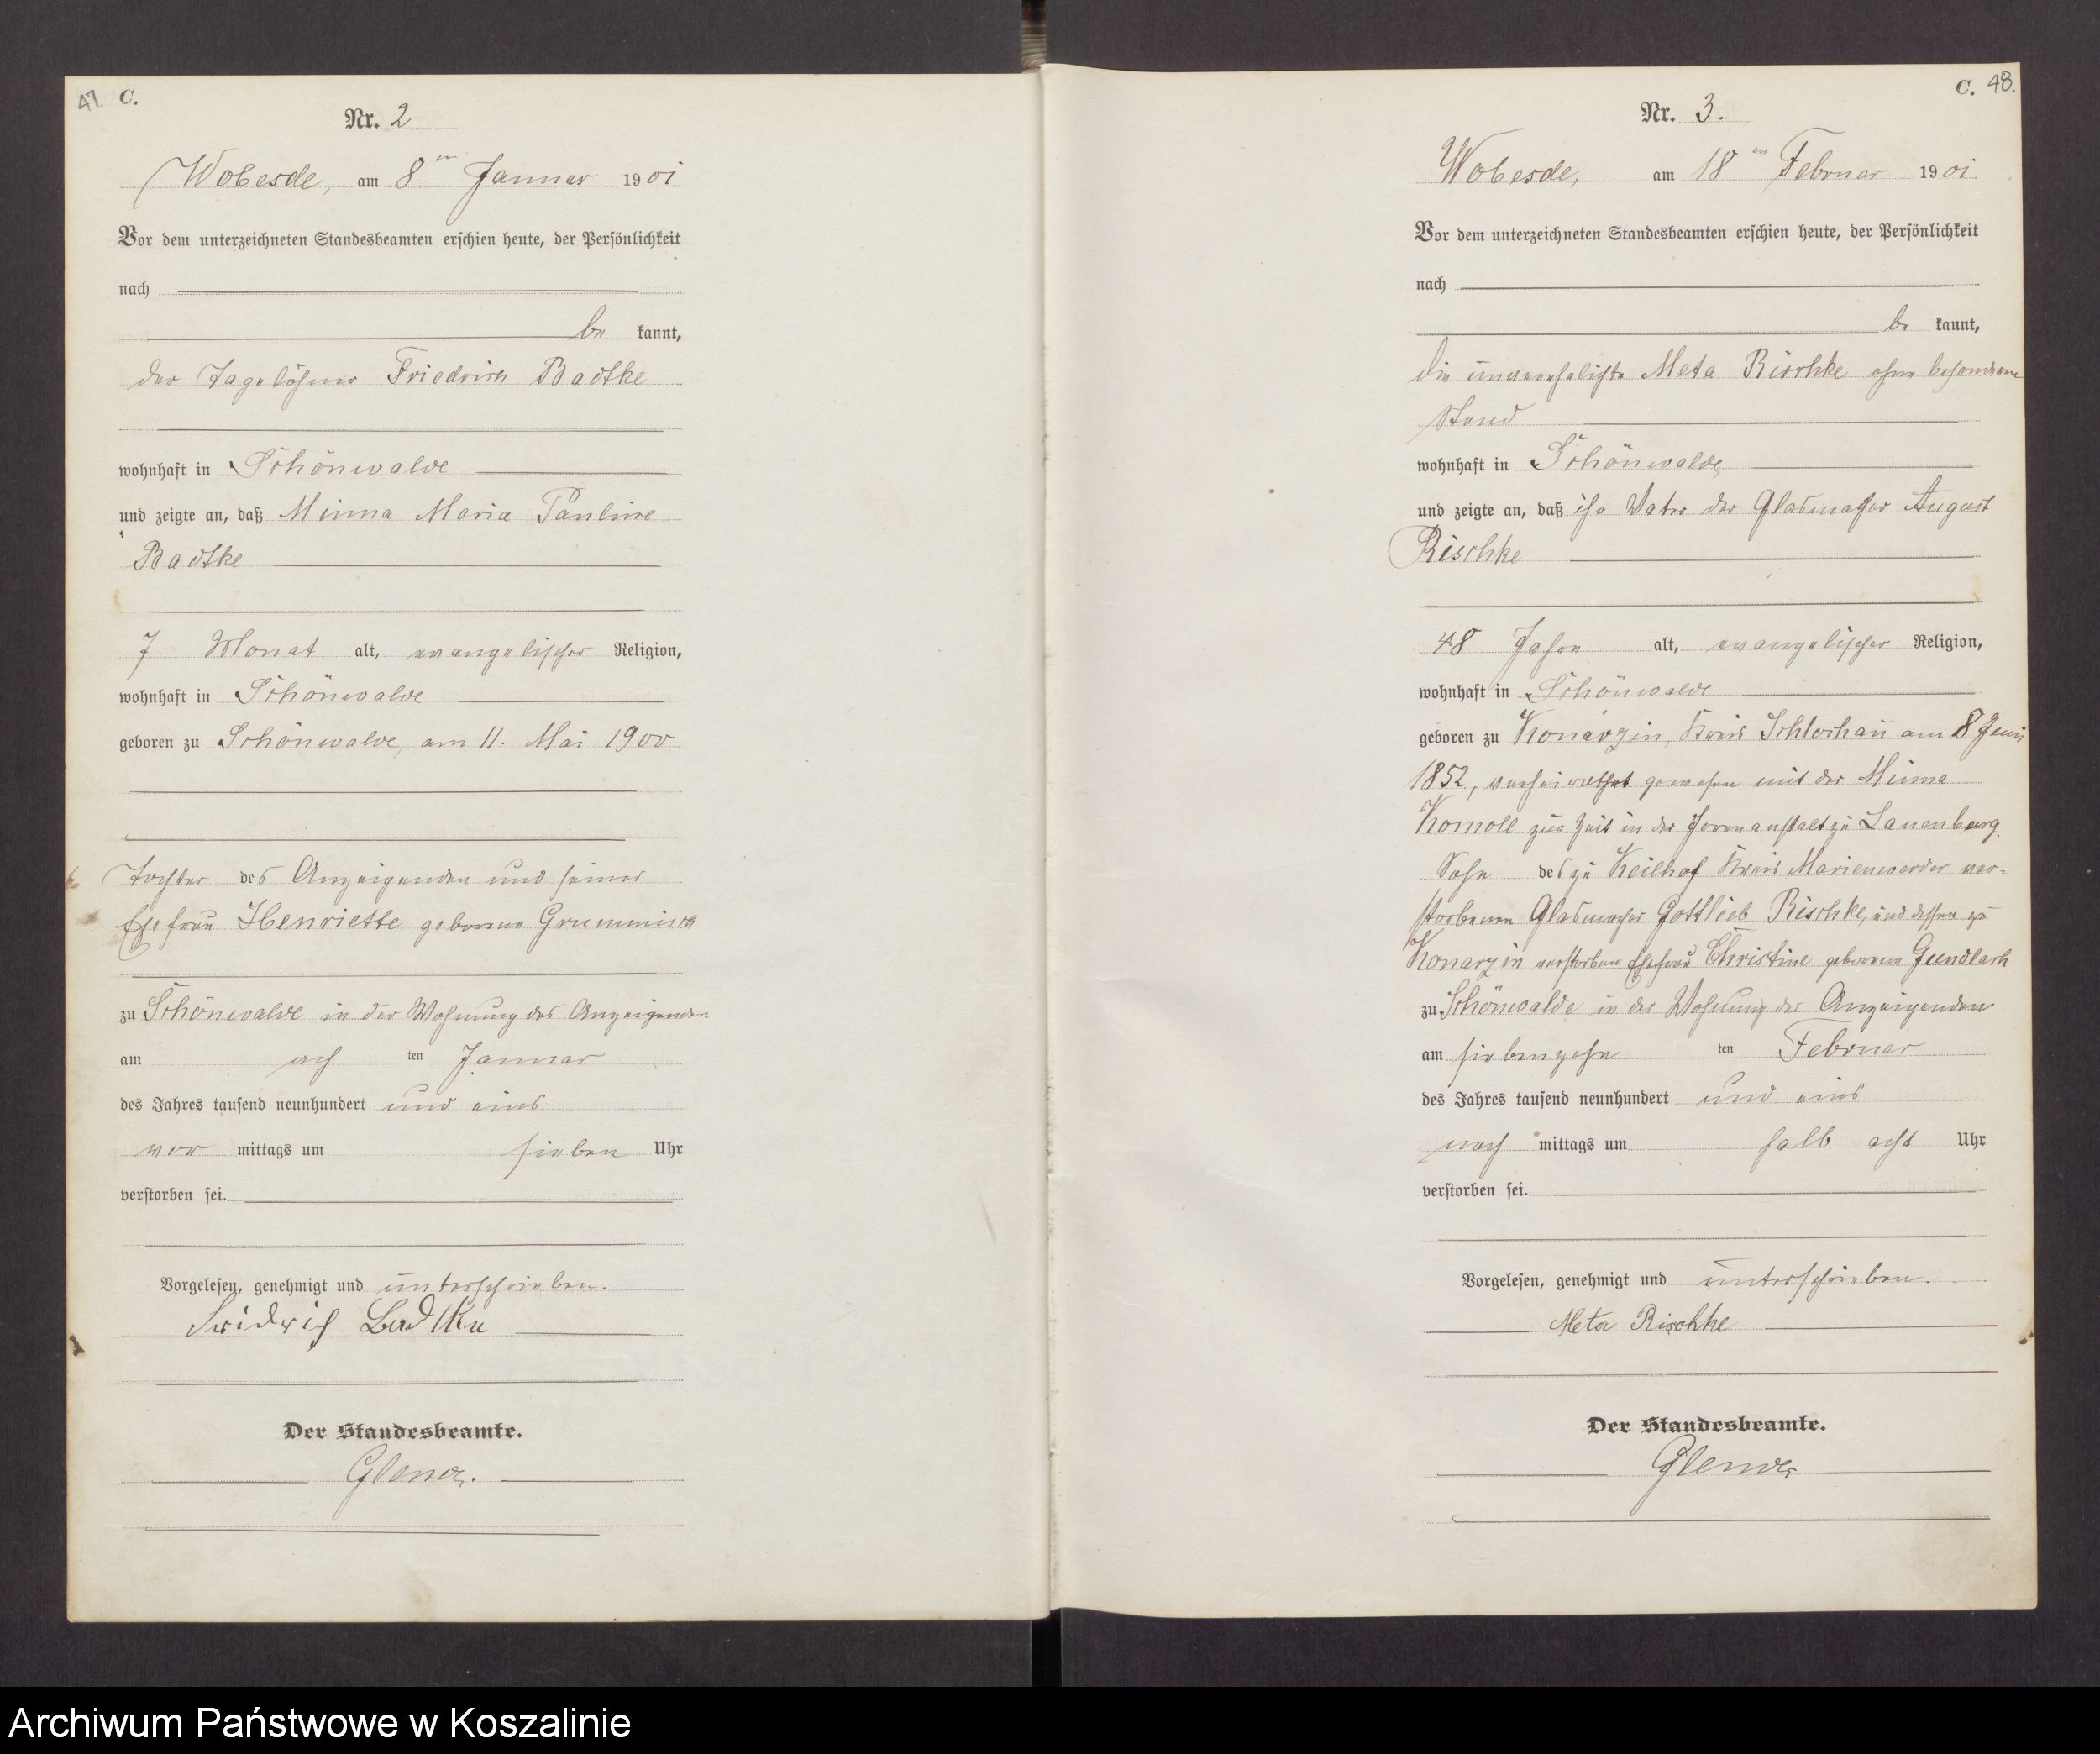 47. C.
Nr. 2
Wobesde, am 8ten Januar 1901
Vor dem unterzeichneten Standesbeamten erschien heute, der Persönlichkeit
nach
be kannt,
der Tagelöhner Friedrich Badtke
wohnhaft in Schönwalde
und zeigte an, daß Minna Maria Pauline
Badtke
7 Monat alt, evangelischer Religion,
wohnhaft in Schönwalde
geboren zu Schönwalde, am 11. Mai 1900
Tochter des Anzeigenden und seiner
Ehefrau Henriette geborene
zu Schönwalde in der Wohnung des Anzeigenden
am ach ten Januar
des Jahres tausend neunhundert und eins
vor mittags um sieben Uhr
verstorben sei.
Vorgelesen, genehmigt und unterschrieben.
Fridrich Badtke
Der Standesbeamte.
C. 48.
Nr. 3.
Wobesde, am 18ten Februar 1901
Vor dem unterzeichneten Standesbeamten erschien heute, der Persönlichkeit
nach
be kannt,
die unverehelichte Meta Rischke ohne besonderen
Stand
wohnhaft in Schönwalde
und zeigte an, daß ihr Vater der Glasmacher August
Rischke
48 Jahre alt, evangelischer Religion,
wohnhaft in Schönwalde
geboren zu Konarzin, Kreis Schlochau am 8 Juni
1852, verheirathet gewesen mit der Minna
Komoll zur Zeit in der Irrenanstalt zu Lauenburg.
Sohn des zu Keilhof Kreis Marienwerder ver-
storbenen Glasmacher Gottlieb Rischke, und dessen zu
Konarzin verstorben Ehefrau Christine geborene Gundlach
zu Schönwalde in der Wohnung der Anzeigenden
am siebenzehn ten Februar
des Jahres tausend neunhundert und eins
nach mittags um halb acht Uhr
verstorben sei.
Vorgelesen, genehmigt und unterschrieben.
Meta Rischke
Der Standesbeamte.
Archiwum Państwowe w Koszalinie